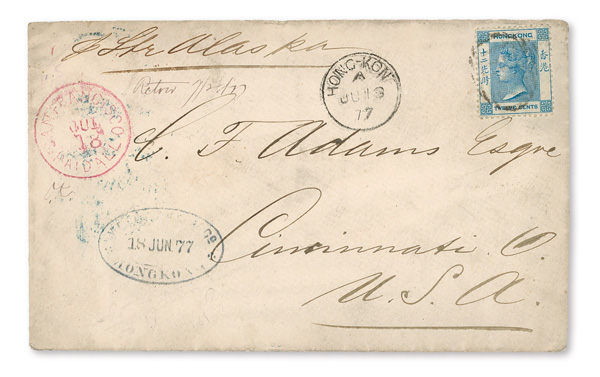 Str Alaska
HONG-KON
A
JU 18
77
HONGKONG
TWELVE CENTS
SAN FRANCISCO
JUL
18
PAID ALL
C. F. Adams Esqre
18 JUN. 77
HONGKONG
Cincinnati O.
U.S.A.